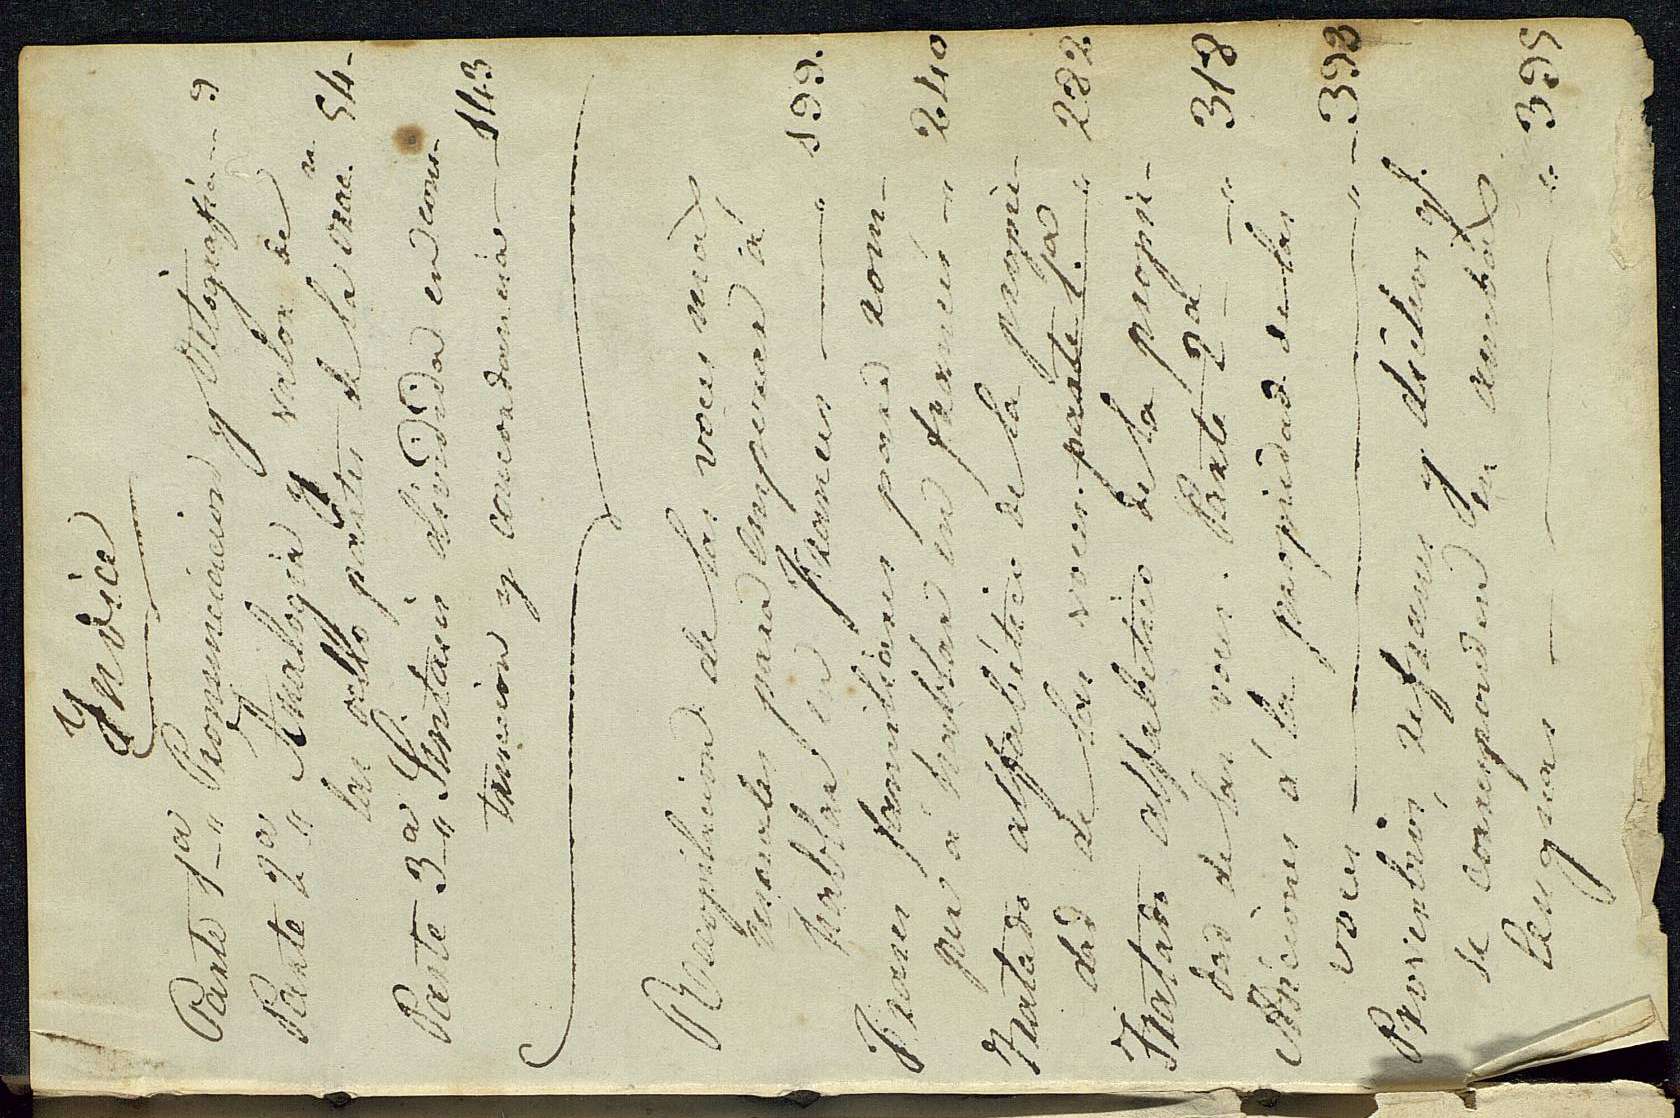 Yndice
Parte 1ª " Pronunciacion y Ortografia 9
Parte 2ª " Analogia y valor de
las ocho partes de la orac.n 54
Parte 3ª " Sintasis dividida en cons-
truccion y concordancia 143
Recopilacion de las voces mas
usuales para empezar á
hablar en frances 199.
Frases familiares para rom-
per á hablar en frances " 240
Tratado alfabetico de la propie-
dad de las voces parte 1ª " 282
Tratado alfabetico de la propie-
dad de las voces Parte 2ª " 318
Adiciones á la propiedad de las
voces " 393
Proverbios, refranes y dichos qe.
se corresponden en ambas
lenguas " 395